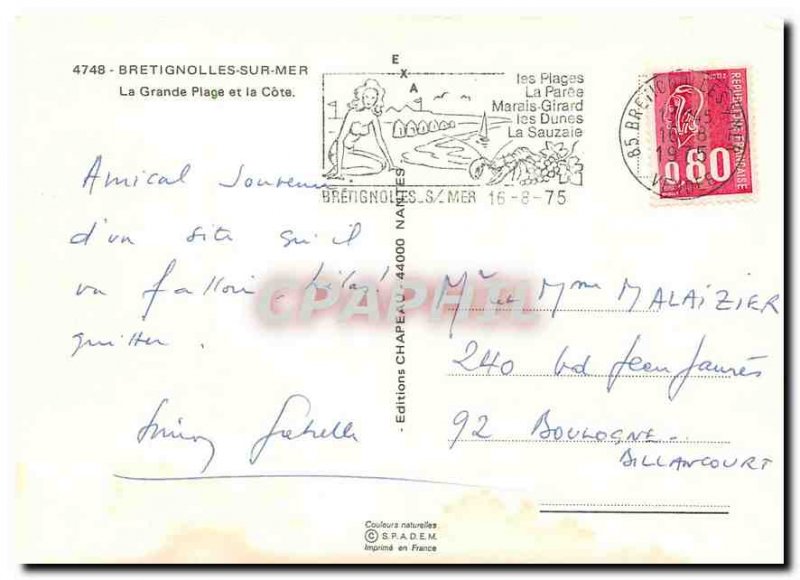 4748 - BRETIGNOLLES-SUR-MER
La Grande Plage et la Côte.
EXA
les Plages
La Parée
Marais-Girard
les Dunes
La Sauzaie
BRETIGNOLLES-S/-MER 16-8-75
16-8
REPUBLIQUE FRANÇAISE
0.80
Amical Souvenir
d'un site qu'il
va falloir, hélas!
quitter.
- Editions CHAPEAU - 44000 NANTES
CPAPHIL
Mr et Mme MALAIZIER
240 bd Jean Jaurès
92 BOULOGNE-
BILLANCOURT
Couleurs naturelles
© S.P.A.D.E.M.
Imprimé en France